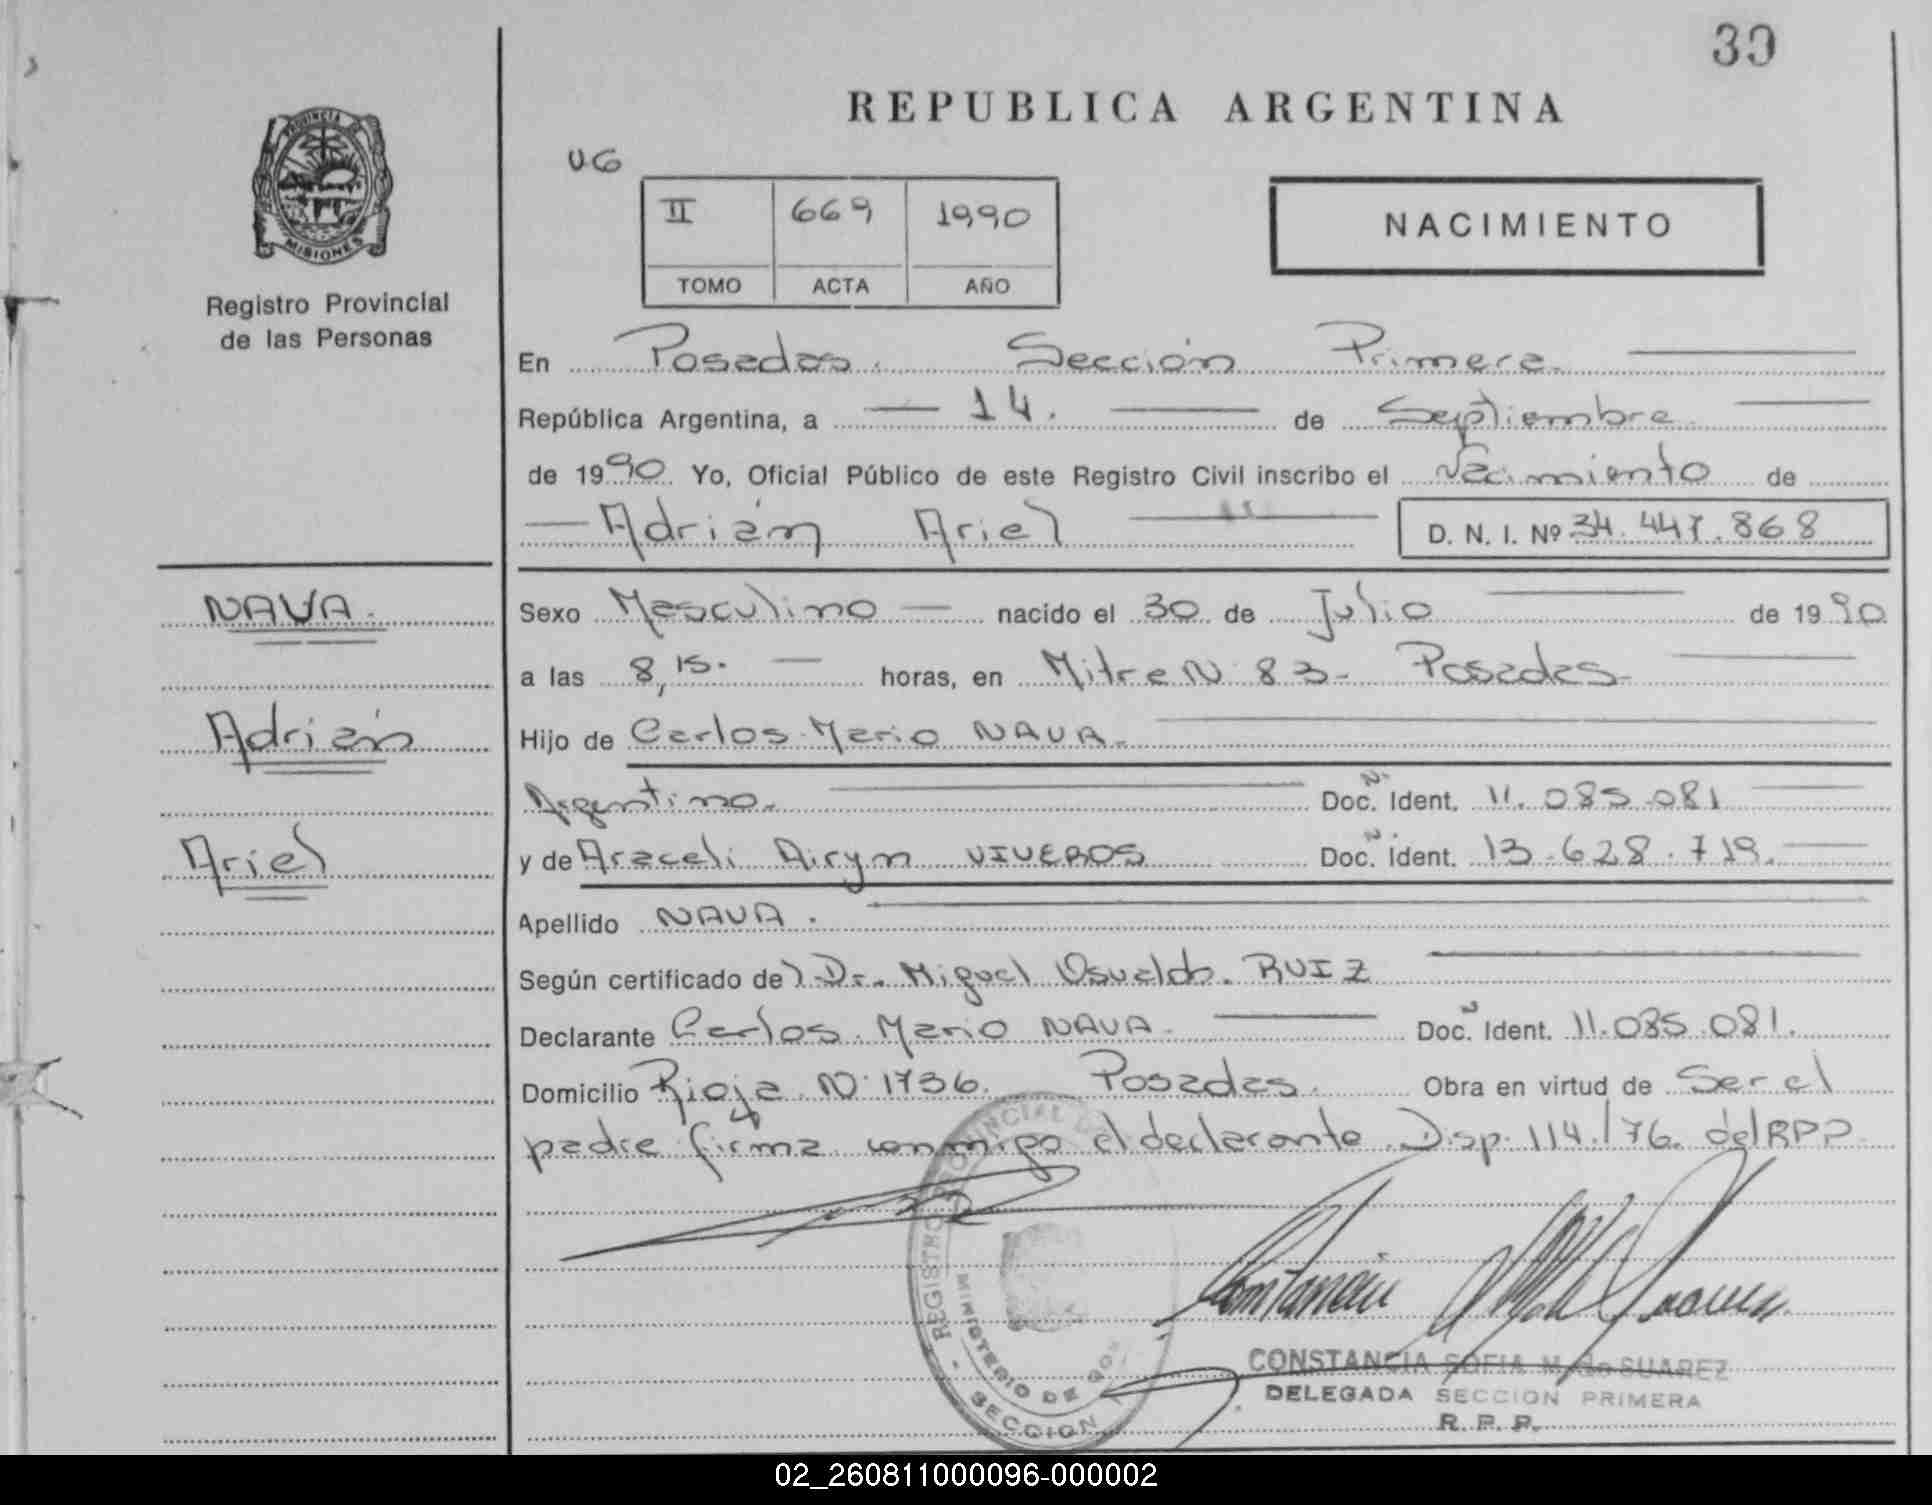 30
REPUBLICA ARGENTINA
UG
II 669 1990
TOMO ACTA AÑO
NACIMIENTO
PROVINCIA DE
MISIONES
Registro Provincial
de las Personas
En Posadas. Sección Primera.
República Argentina, a 14. de Septiembre
de 1990 Yo, Oficial Público de este Registro Civil inscribo el Nacimiento de
Adrián Ariel D. N. I. Nº 34.447.868
NAVA.
Adrián
Ariel
Sexo Masculino nacido el 30 de Julio de 1990
a las 8,15. horas, en Mitre N 83. Posadas
Hijo de Carlos Mario NAVA.
Argentino. Doc. N. Ident. 11.085.081
y de Araceli Airym VIVEROS Doc. N. Ident. 13.628.719.
Apellido NAVA.
Según certificado de) Dr. Miguel Osvaldo. RUIZ
Declarante Carlos Mario NAVA. Doc. Ident. 11.085.081.
Domicilio Rioja Nº 1736. Posadas. Obra en virtud de Ser el
padre firma conmigo el declarante. Disp. 114/76. del RPP
REGISTRO PROVINCIAL DE
MINISTERIO DE GOB
SECCION
CONSTANCIA SOFIA M. de SUAREZ
DELEGADA SECCION PRIMERA
R. P. P.
02_260811000096-000002